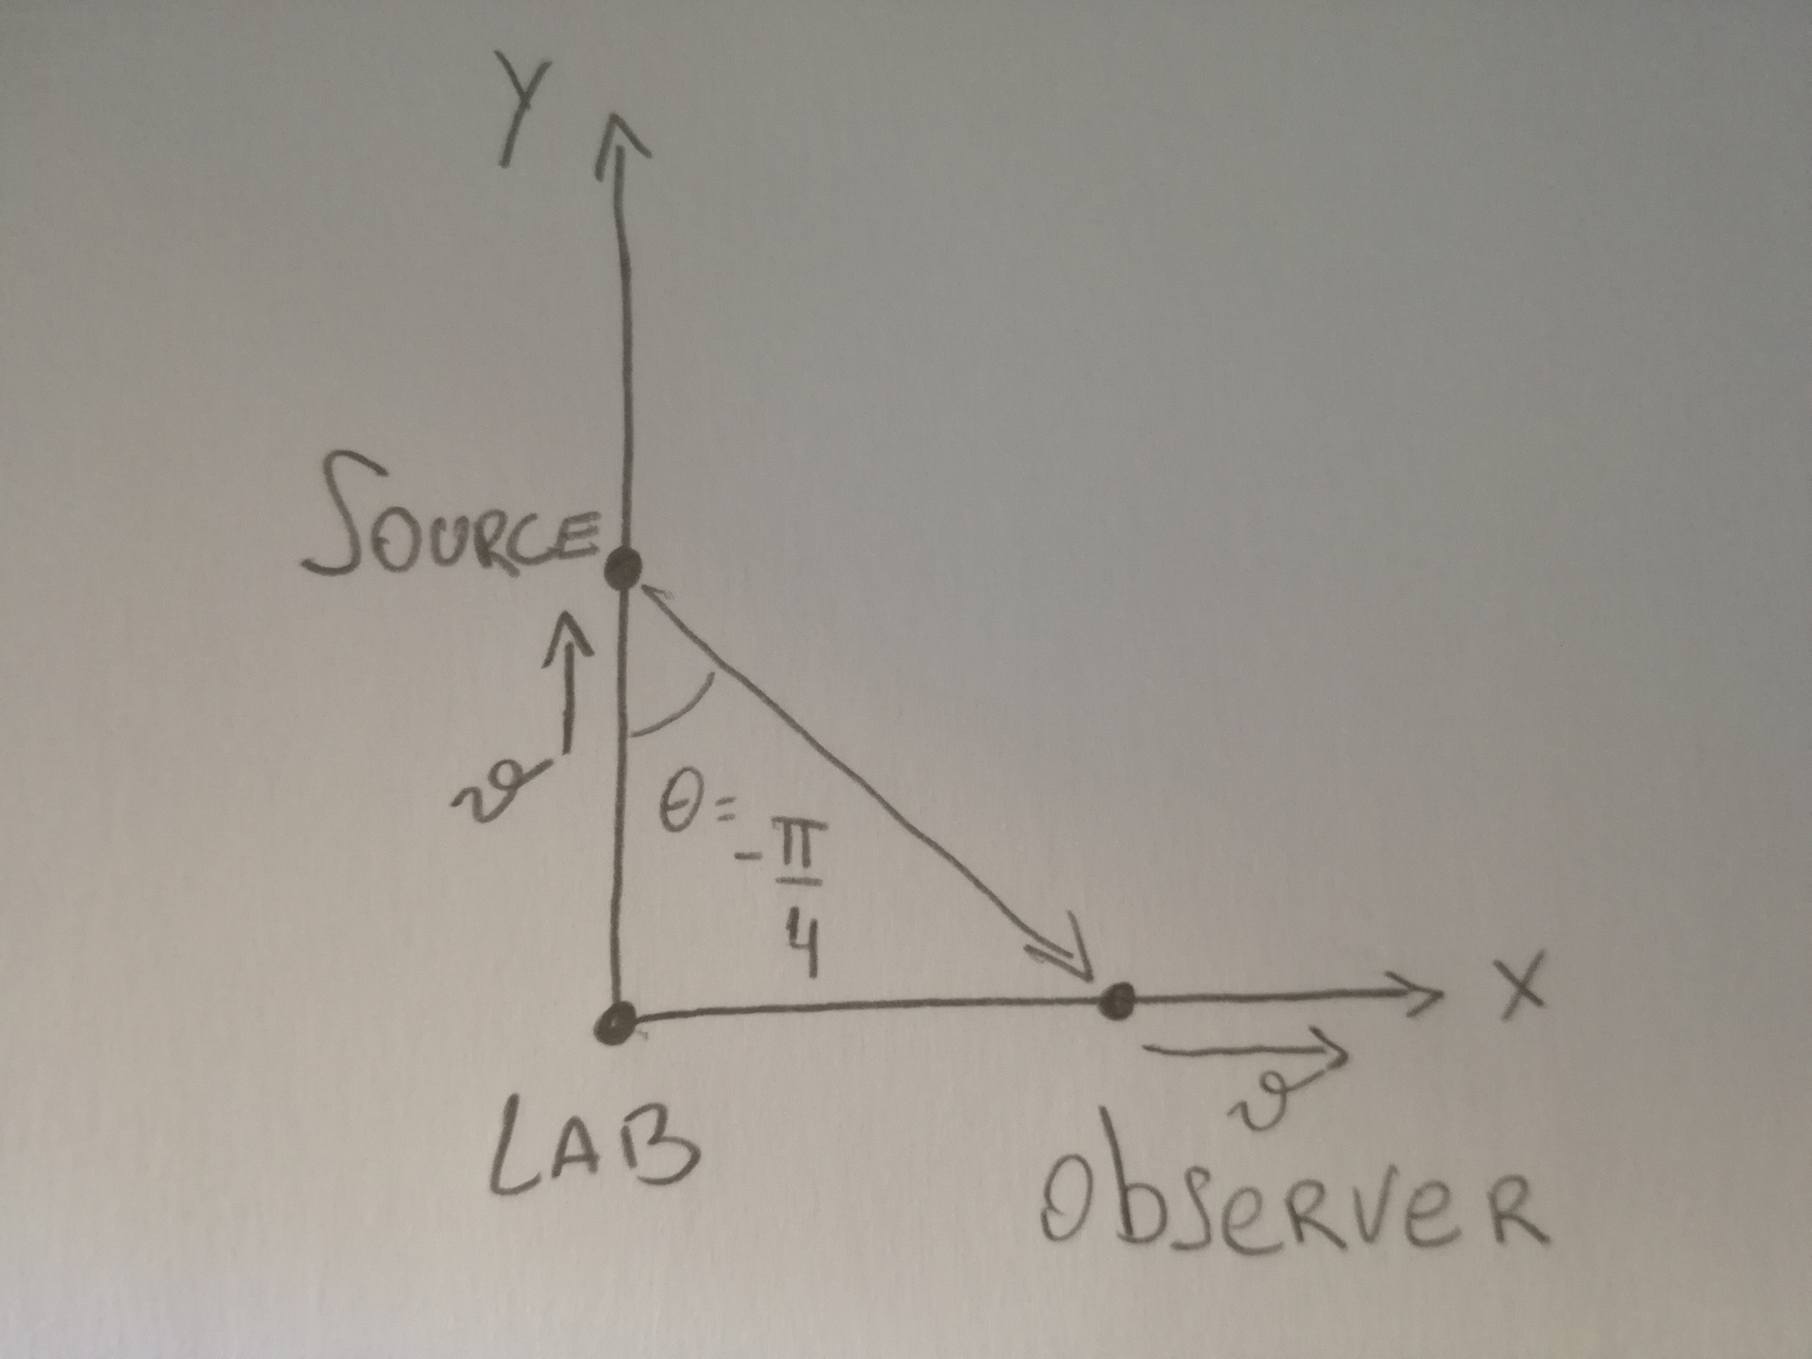 Y
SOURCE
v
θ=
-π
4
X
v
LAB
ObSeRVeR